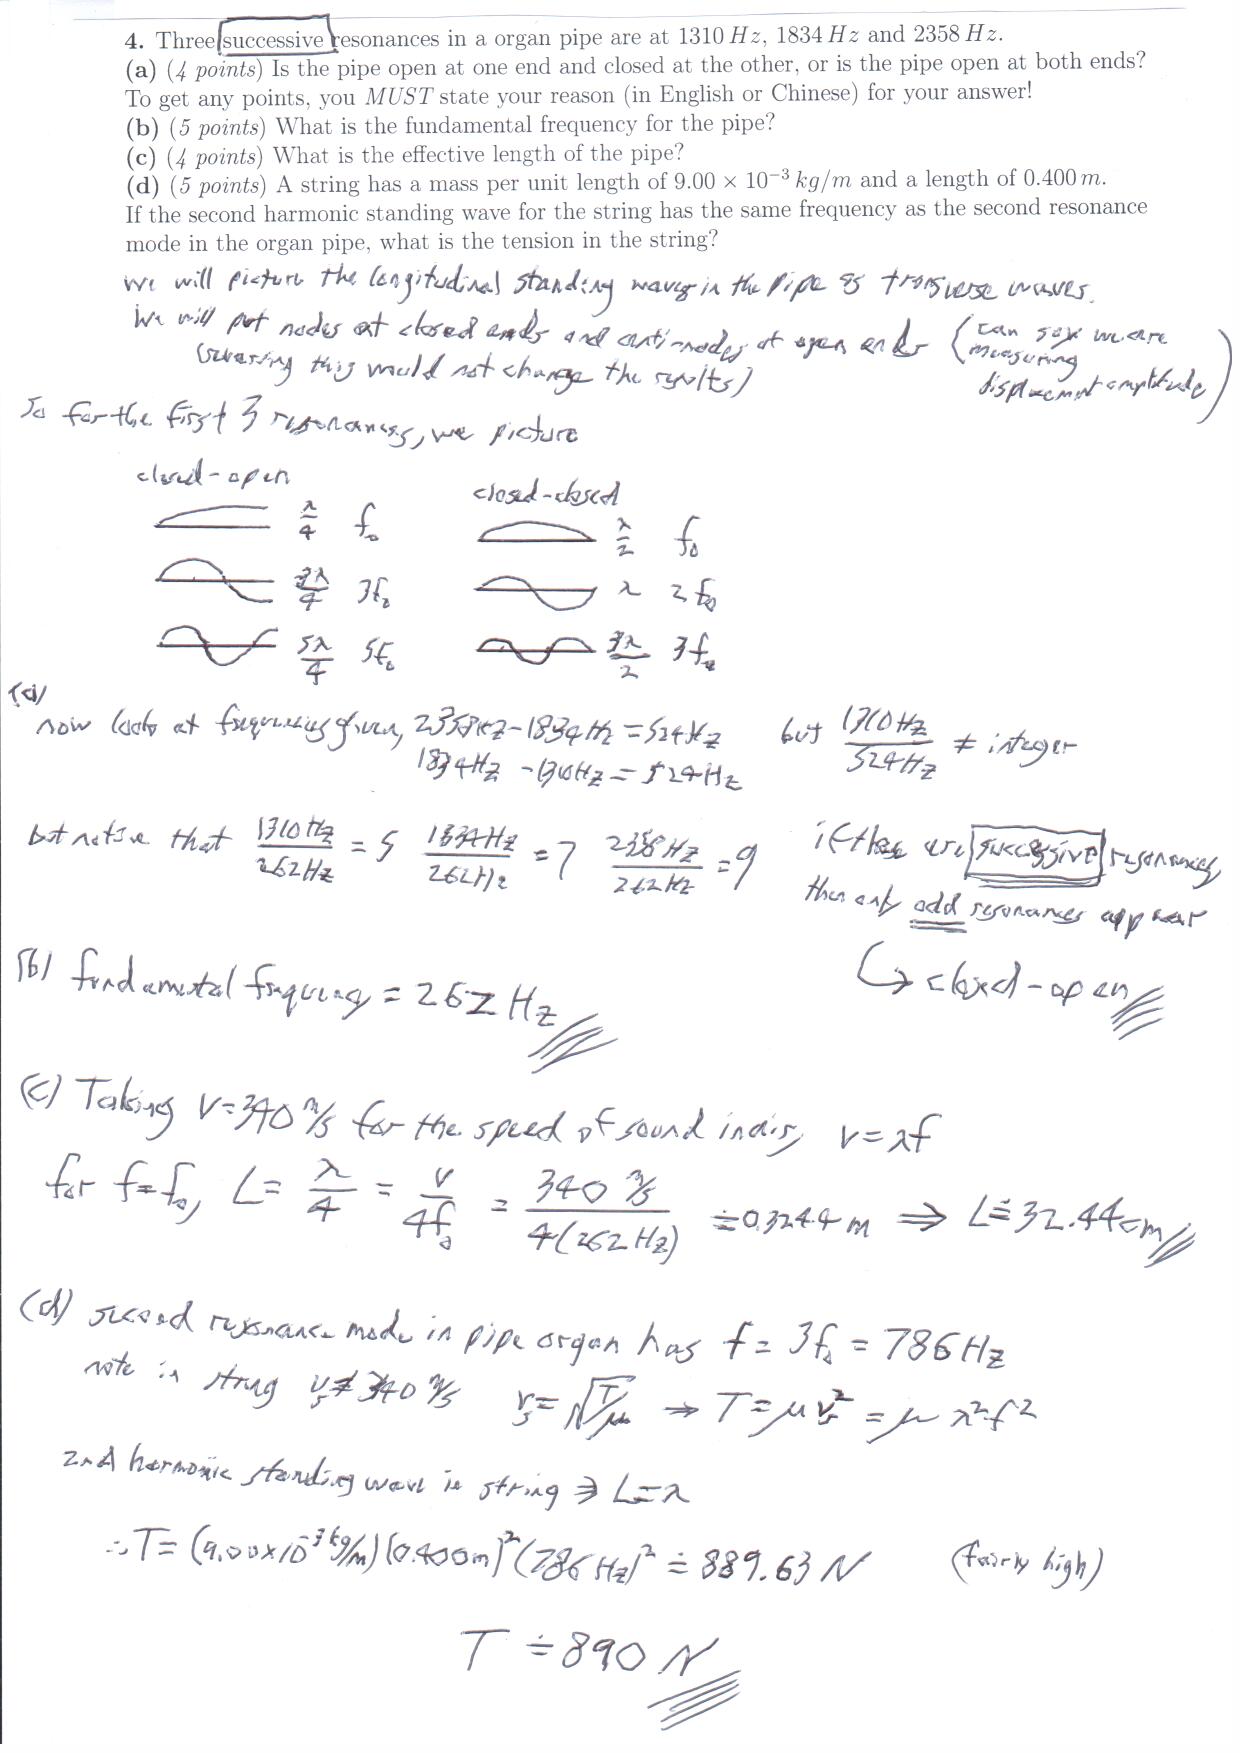 4. Three successive resonances in a organ pipe are at 1310 Hz, 1834 Hz and 2358 Hz.
(a) (4 points) Is the pipe open at one end and closed at the other, or is the pipe open at both ends?
To get any points, you MUST state your reason (in English or Chinese) for your answer!
(b) (5 points) What is the fundamental frequency for the pipe?
(c) (4 points) What is the effective length of the pipe?
(d) (5 points) A string has a mass per unit length of 9.00 × 10⁻³ kg/m and a length of 0.400 m.
If the second harmonic standing wave for the string has the same frequency as the second resonance
mode in the organ pipe, what is the tension in the string?
We will picture the longitudinal standing waves in the pipe as transverse waves.
We will put nodes at closed ends and anti-nodes at open ends (can say we are
measuring
displacement amplitude)
(swapping this would not change the results)
So for the first 3 resonances, we picture
closed-open closed-closed
λ/4 f₀ λ/2 f₀
3λ/4 3f₀ λ 2f₀
5λ/4 5f₀ 3λ/2 3f₀
(a)
now look at frequencies given, 2358Hz - 1834Hz = 524Hz but 1310Hz/524Hz ≠ integer
1834Hz - 1310Hz = 524Hz
but notice that 1310Hz/262Hz = 5 1834Hz/262Hz = 7 2358Hz/262Hz = 9 if they are successive resonances,
then only odd resonances appear
↳ closed-open
(b) fundamental frequency = 262 Hz
(c) Taking v=340 m/s for the speed of sound in air, v=λf
for f=f₀, L = λ/4 = v/4f₀ = 340 m/s / 4(262Hz) ≐ 0.3244 m ⇒ L ≐ 32.44cm
(d) second resonance mode in pipe organ has f = 3f₀ = 786Hz
note in string vₛ ≠ 340 m/s vₛ = √T/μ ⇒ T = μvₛ² = μλ²f²
2nd harmonic standing wave in string ⇒ L=λ
∴ T = (9.00×10⁻³ kg/m)(0.400m)²(786 Hz)² ≐ 889.63 N (fairly high)
T ≐ 890 N